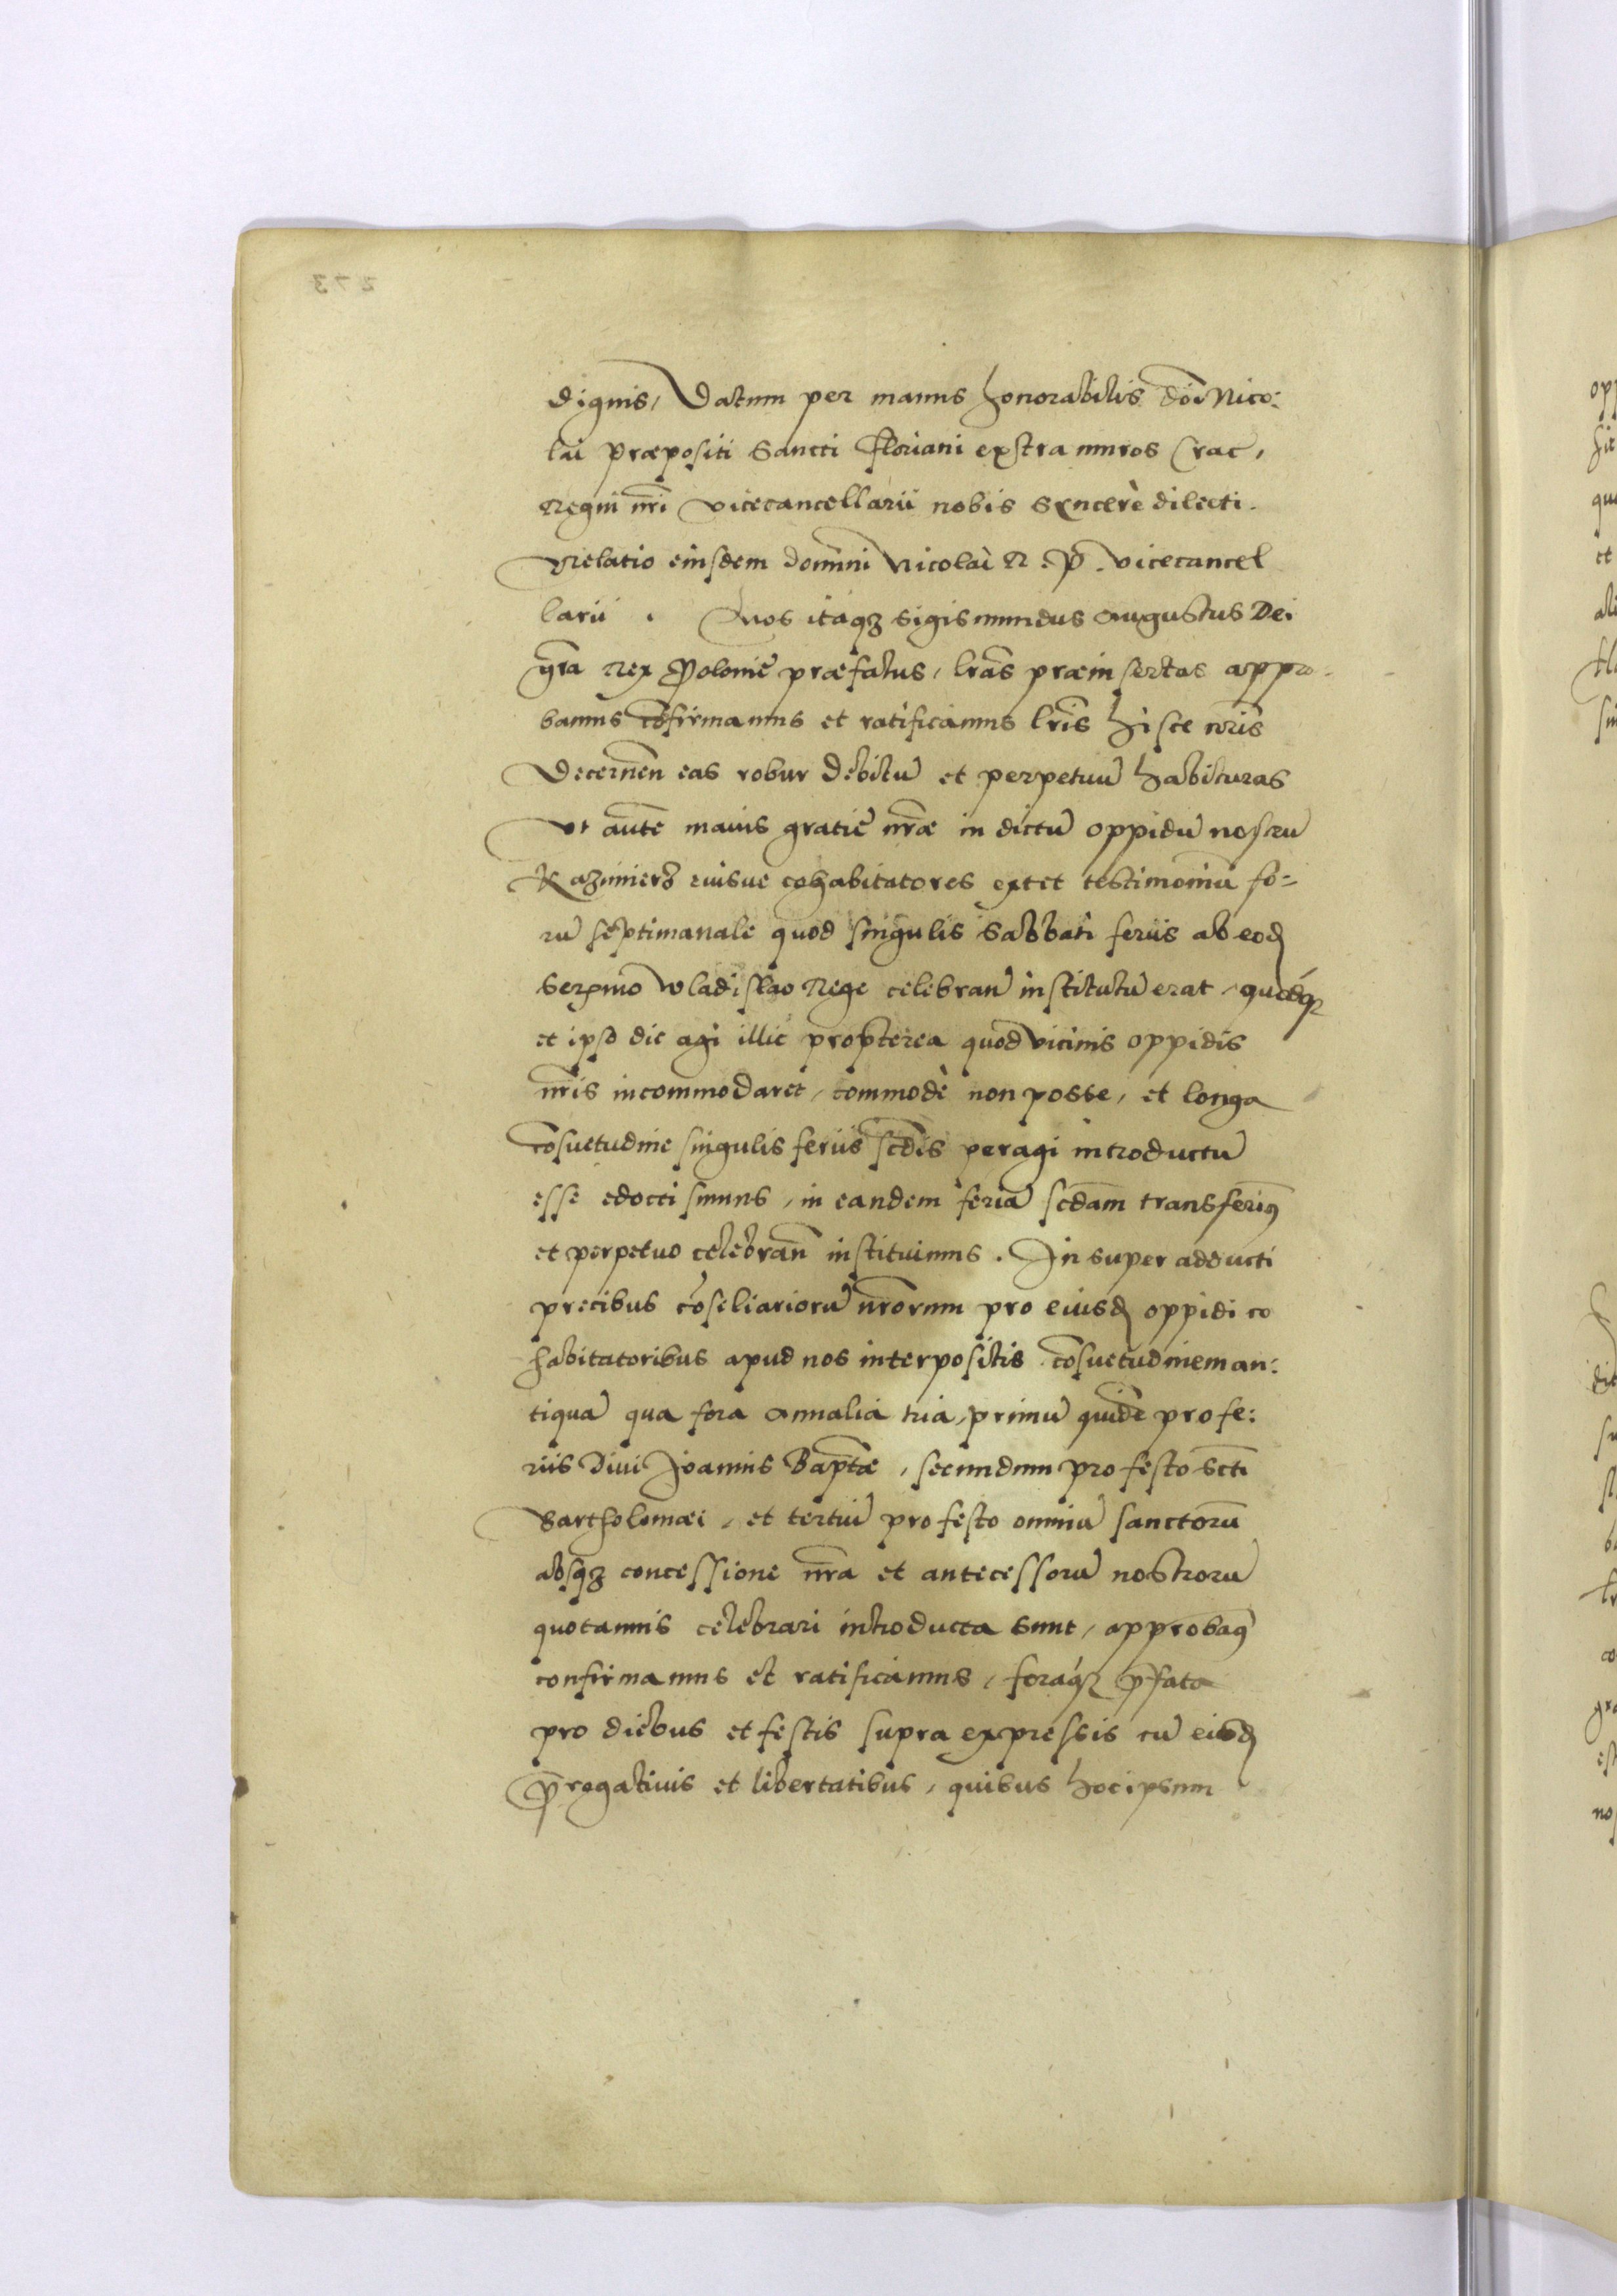 dignis, Datum per manus honorabilis dōi Nico:
lai Præpositi Sancti Floriani exstra muros Crac,
Regni nr̄i vicecancellarii nobis syncerè dilecti.
Relatio eiusdem domini Nicolai R. P. vicecancel
larii. Nos itaqȝ Sigismundus Augustus Dei
gr̄a Rex Poloniē præfatus, lr̄as præinsertas appro-
bamus cōfirmamus et ratificamus lr̄is hisce nr̄is
Decernēn eas robur debitū et perpetuū habituras
Vt autē maius gratiē nr̄æ in dictū oppidū nostrū
Kazimierz eiusve cohabitatores extet testimoniū fo=
rū septimanale quod singulis Sabbati feriis ab eod
Serxmo Vladislao Rege celebran̄ institutū erat, quodqȝ
et ipso die agi illic propterea quod vicinis oppidis
nr̄is incommodaret, commodè non posse, et longa
cōsuetudine singulis feriis scd̄is peragi introductū
esse edocti sumus, in eandem feriā scdam transferimꝰ
et perpetuo celebrān instituimus. In super adducti
precibus cōsiliariorū nr̄orum pro eiusd oppidi co
habitatoribus apud nos interpositis cōsuetudinem an:
tiquā qua fora annalia tria, primū quidē pro fe:
riis Divi Joannis Bapt̄æ, secundum pro festo sct̄i
Bartholomæi, et tertiū pro festo omniū sanctorū
absqȝ concessione nr̄a et antecessorū nostrorū
quotannis celebrari introducta sunt, approbamꝰ
confirmamus et ratificamus, foraqȝ p̄fata
pro diebus et festis supra expressis cū eisd
p̄rogativis et libertatibus, quibus hoc ipsum